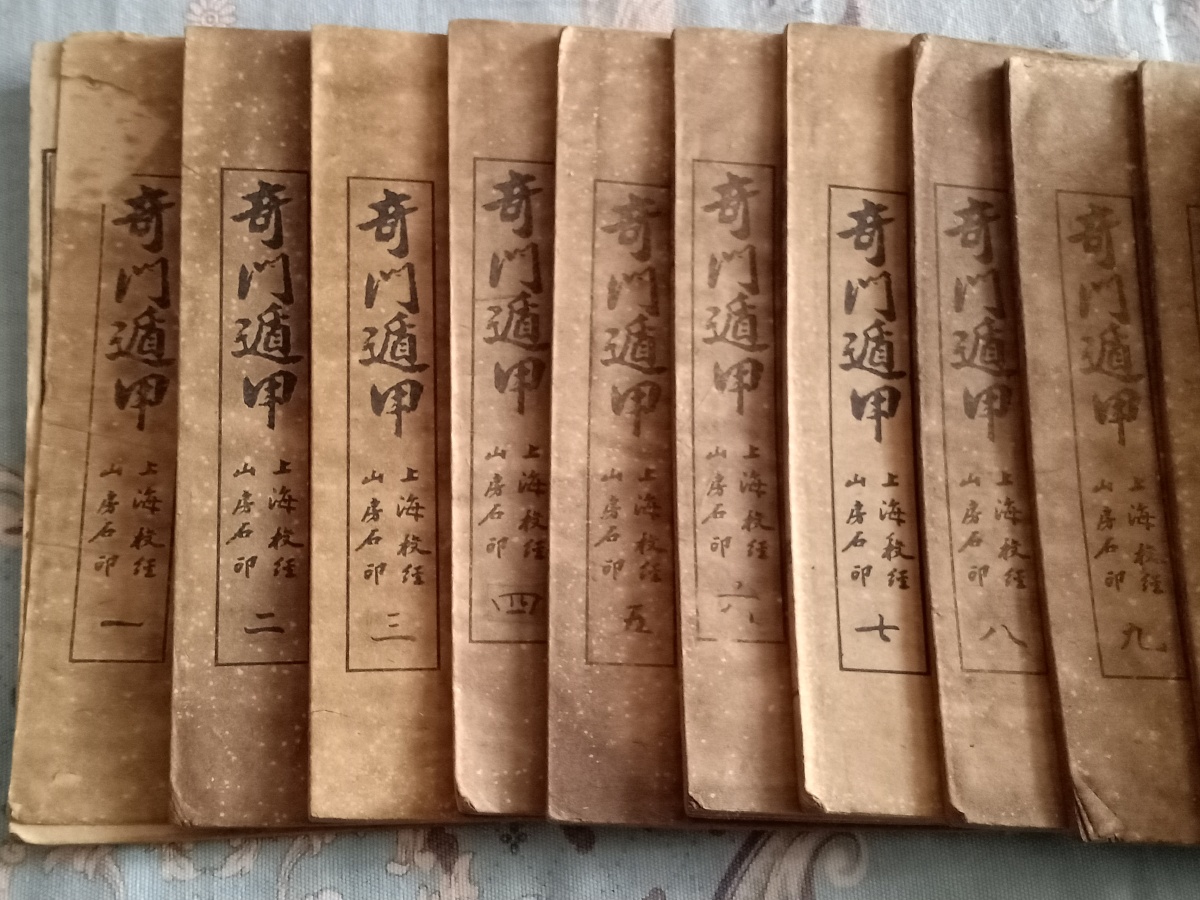 奇門遁甲
上海校經
山房石印
一
奇門遁甲
上海校經
山房石印
二
奇門遁甲
上海校經
山房石印
三
奇門遁甲
上海校經
山房石印
四
奇門遁甲
上海校經
山房石印
五
奇門遁甲
上海校經
山房石印
六
奇門遁甲
上海校經
山房石印
七
奇門遁甲
上海校經
山房石印
八
奇門遁甲
上海校經
山房石印
九